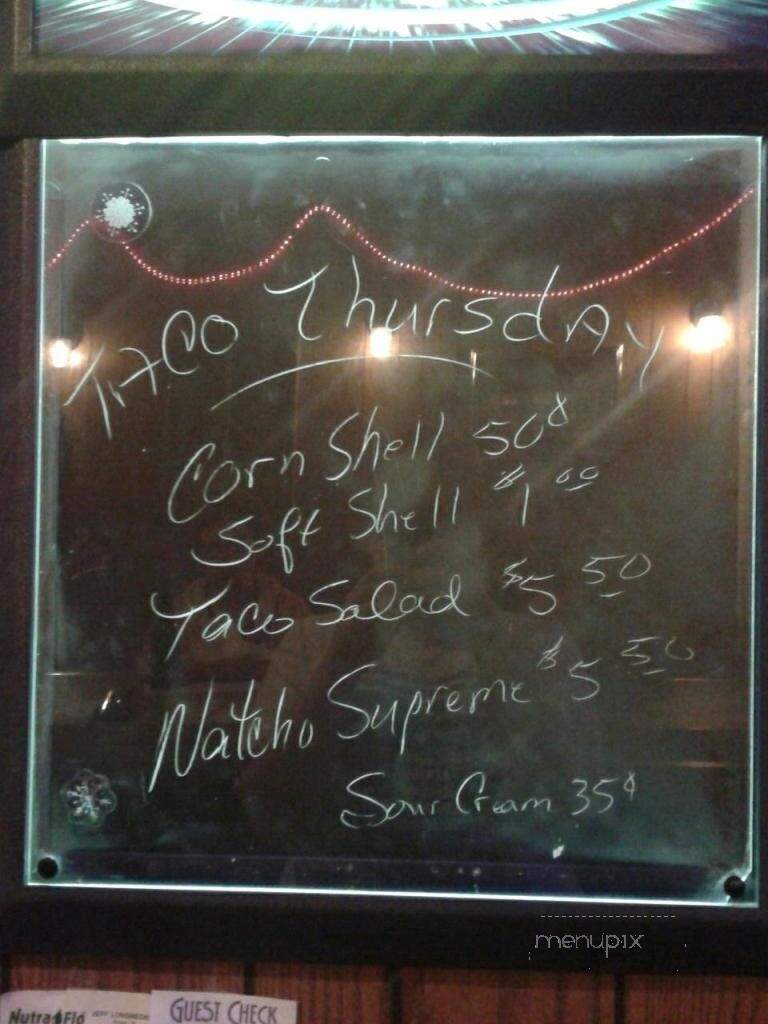 TACO ThursdAy
Corn Shell 50¢
Soft Shell $1 00
Taco Salad $5 50
Natcho Supreme $5 50
Sour Cream 35¢
menupix
Nutra Flo
GUEST CHECK